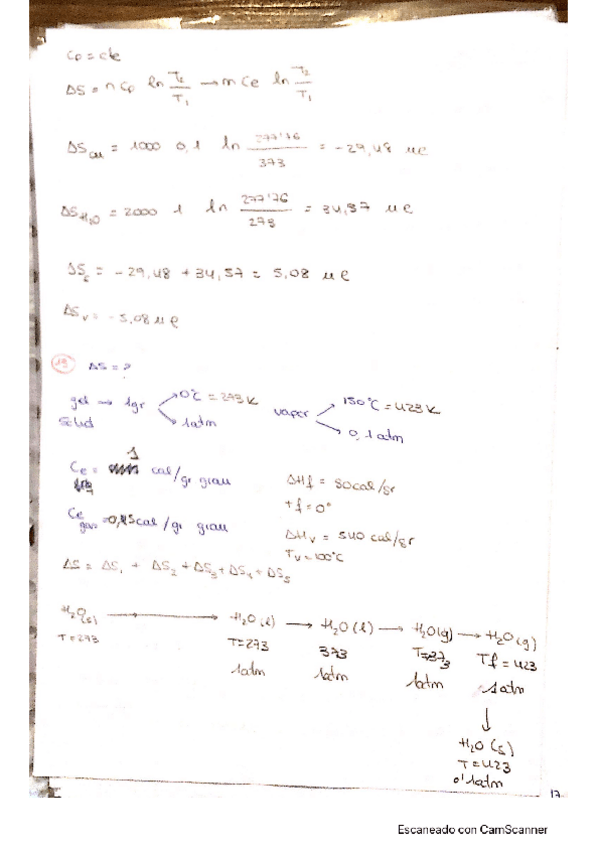 Cp = cte
ΔS = n Cp ln T2/T1 → m Ce ln T2/T1
ΔSCu = 1000 0,1 ln 277'76/373 = -29,48 ue
ΔSH2O = 2000 1 ln 277'76/273 = 34,57 ue
ΔSc = -29,48 + 34,57 = 5,08 ue
ΔSv = -5,08 ue
19 ΔS = ?
gel → 1gr 0ºC = 273 K vapor 150ºC = 423 K
sòlid 1 atm 0,1 atm
1
Ce = cal/gr grau ΔHf = 80 cal/gr
Tf = 0º
Ce gas = 0,45 cal/gr grau ΔHv = 540 cal/gr
Tv = 100ºC
ΔS = ΔS1 + ΔS2 + ΔS3 + ΔS4 + ΔS5
H2O(s) → H2O(l) → H2O(l) → H2O(g) → H2O(g)
T = 273 T = 273 373 T = 373 Tf = 423
1 atm 1 atm 1 atm 1 atm
↓
H2O (g)
T = 423
0'1 atm
17
Escaneado con CamScanner